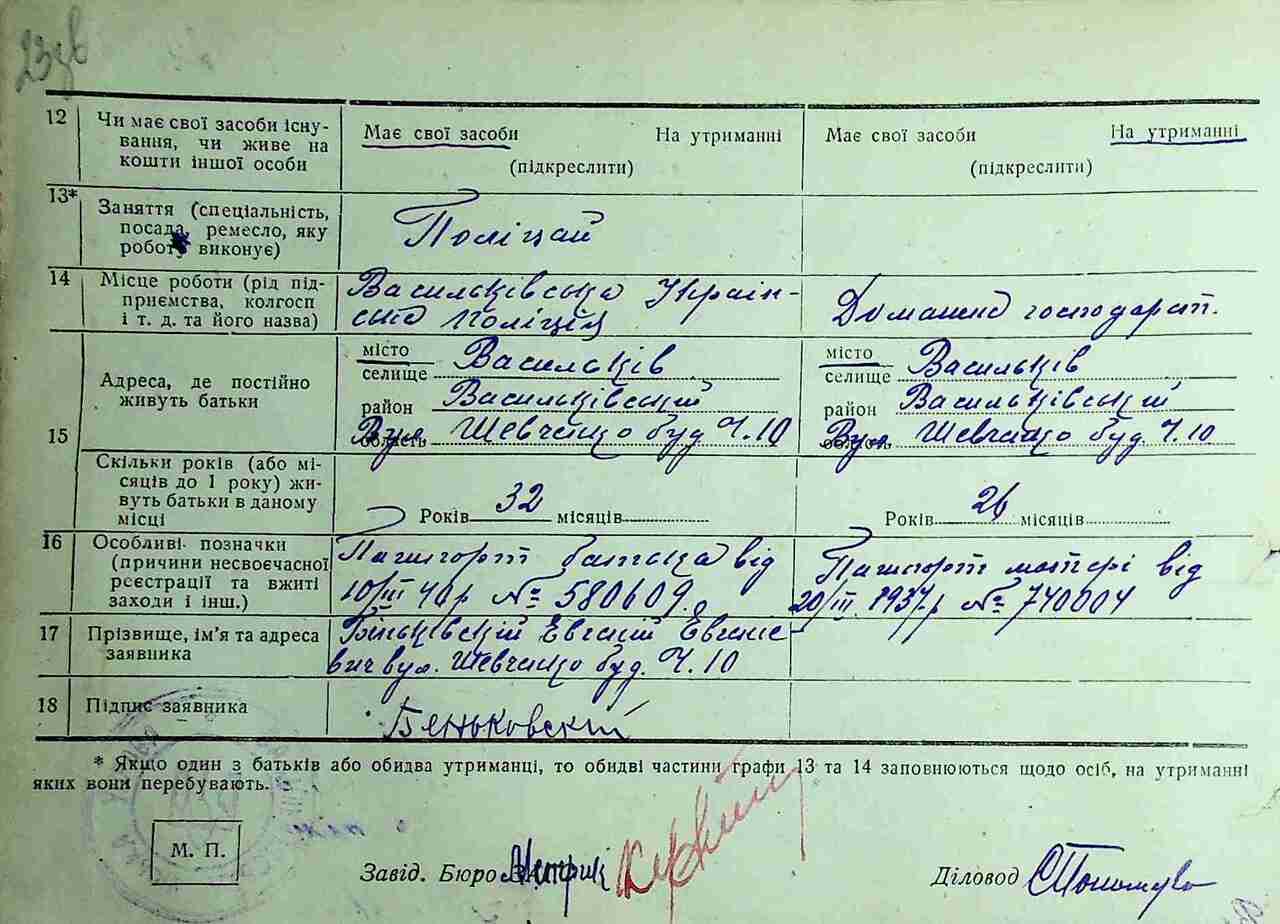 23зв
12 Чи має свої засоби існу-
вання, чи живе на
кошти іншої особи
Має свої засоби На утриманні
(підкреслити)
Має свої засоби На утриманні
(підкреслити)
13* Заняття (спеціальність,
посада, ремесло, яку
роботу виконує)
Поліцай
14 Місце роботи (рід під-
приємства, колгосп
і т. д. та його назва)
Васильківська Україн-
ська Поліція
Домашнє господарст.
15
Адреса, де постійно
живуть батьки
місто Васильків
селище
район Васильківський
область Вул. Шевченко буд. Ч. 10
місто Васильків
селище
район Васильківський
область Вул. Шевченко буд. Ч. 10
Скільки років (або мі-
сяців до 1 року) жи-
вуть батьки в даному
місці
Років 32 місяців
Років 26 місяців
16 Особливі позначки
(причини несвоєчасної
реєстрації та вжиті
заходи і інш.)
Пашпорт батька від
10/III 40р № 580609.
Пашпорт матері від
20/III. 1937р № 740004
17 Прізвище, ім'я та адреса
заявника
Біньківський Евгеній Евгене-
вич вул. Шевченко буд. Ч. 10
18 Підпис заявника
Беньковский
* Якщо один з батьків або обидва утриманці, то обидві частини графи 13 та 14 заповнюються щодо осіб, на утриманні
яких вони перебувають.
М. П.
Завід. Бюро
Діловод